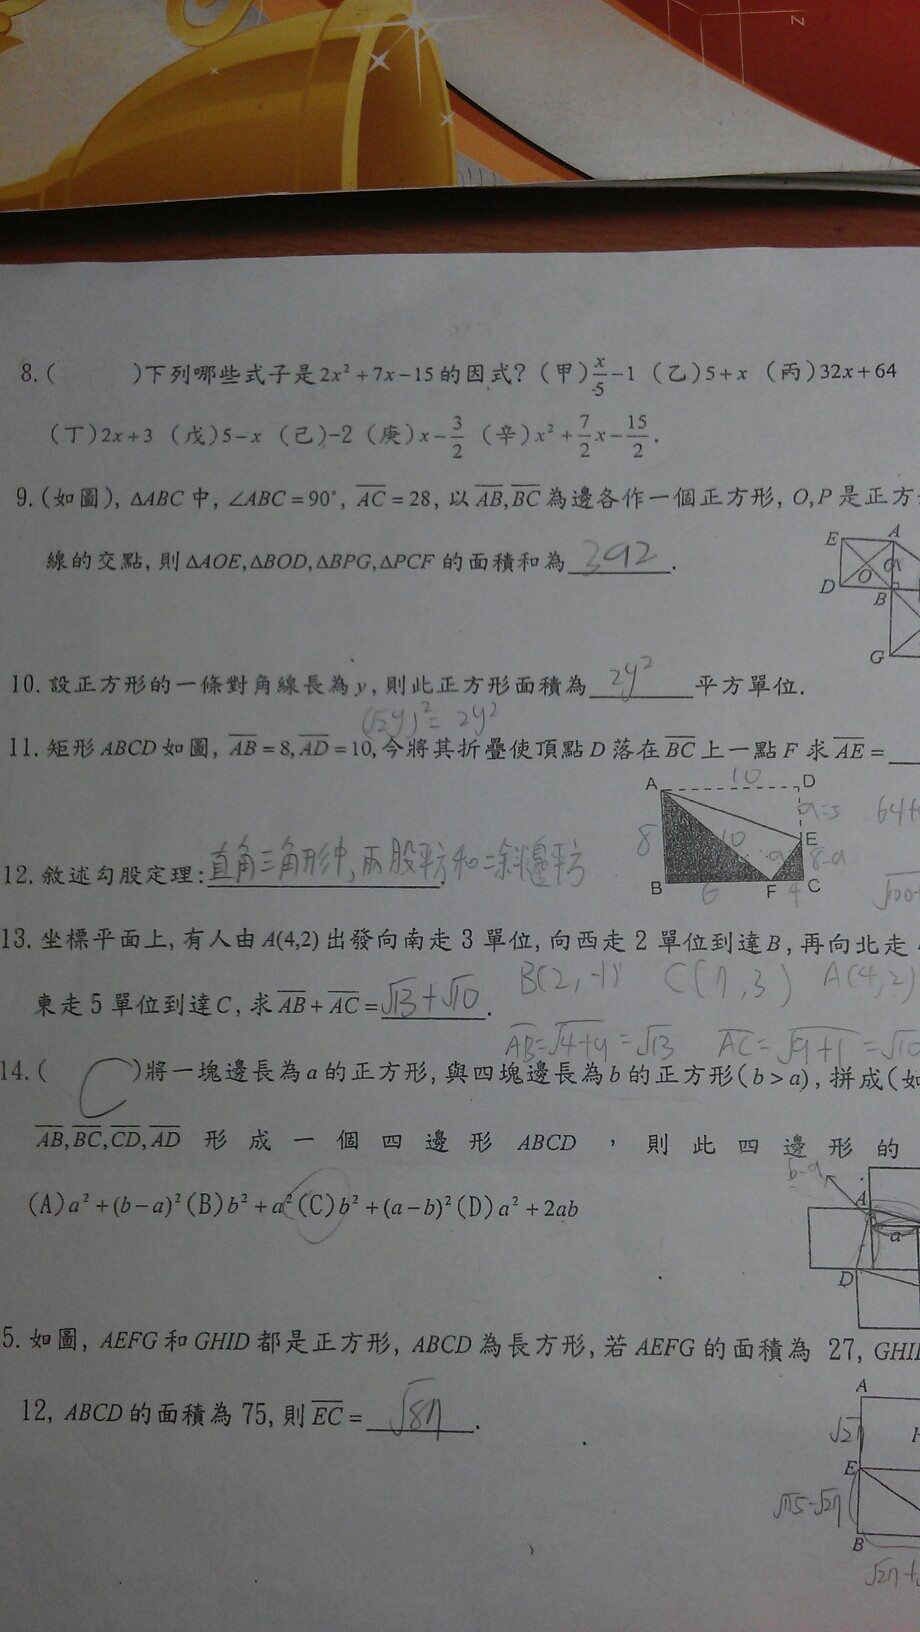 8.( )下列哪些式子是2x²+7x-15的因式？(甲)x/-5-1 (乙)5+x (丙)32x+64
(丁)2x+3 (戊)5-x (己)-2 (庚)x-3/2 (辛)x²+7/2x-15/2.
9.(如圖), ΔABC中, ∠ABC=90°, AC=28, 以AB,BC為邊各作一個正方形, O,P是正方
線的交點, 則ΔAOE,ΔBOD,ΔBPG,ΔPCF的面積和為392.
E A
O a
D B
G
10.設正方形的一條對角線長為y, 則此正方形面積為2y²平方單位.
(√2y)²=2y²
11.矩形ABCD如圖, AB=8,AD=10,今將其折疊使頂點D落在BC上一點F 求AE=
A 10 D
a=5 64+
8 10 E
a 8-a
B 6 F 4 C
√100+
12.敘述勾股定理:直角三角形中,兩股平方和=斜邊平方.
13.坐標平面上, 有人由A(4,2)出發向南走3單位, 向西走2單位到達B, 再向北走
B(2,-1) C(7,3) A(4,2)
東走5單位到達C, 求AB+AC=√13+√10.
AB=√4+9=√13 AC=√9+1=√10
14.( C )將一塊邊長為a的正方形, 與四塊邊長為b的正方形(b>a), 拼成(如
AB,BC,CD,AD 形成一個四邊形ABCD,則此四邊形的
b-a
(A)a²+(b-a)²(B)b²+a²(C)b²+(a-b)²(D)a²+2ab
A
a
D
5.如圖, AEFG和GHID都是正方形, ABCD為長方形, 若AEFG的面積為 27, GHI
12, ABCD的面積為75, 則EC=√87.
A
√27 H
E
√75-√27
B
√27+